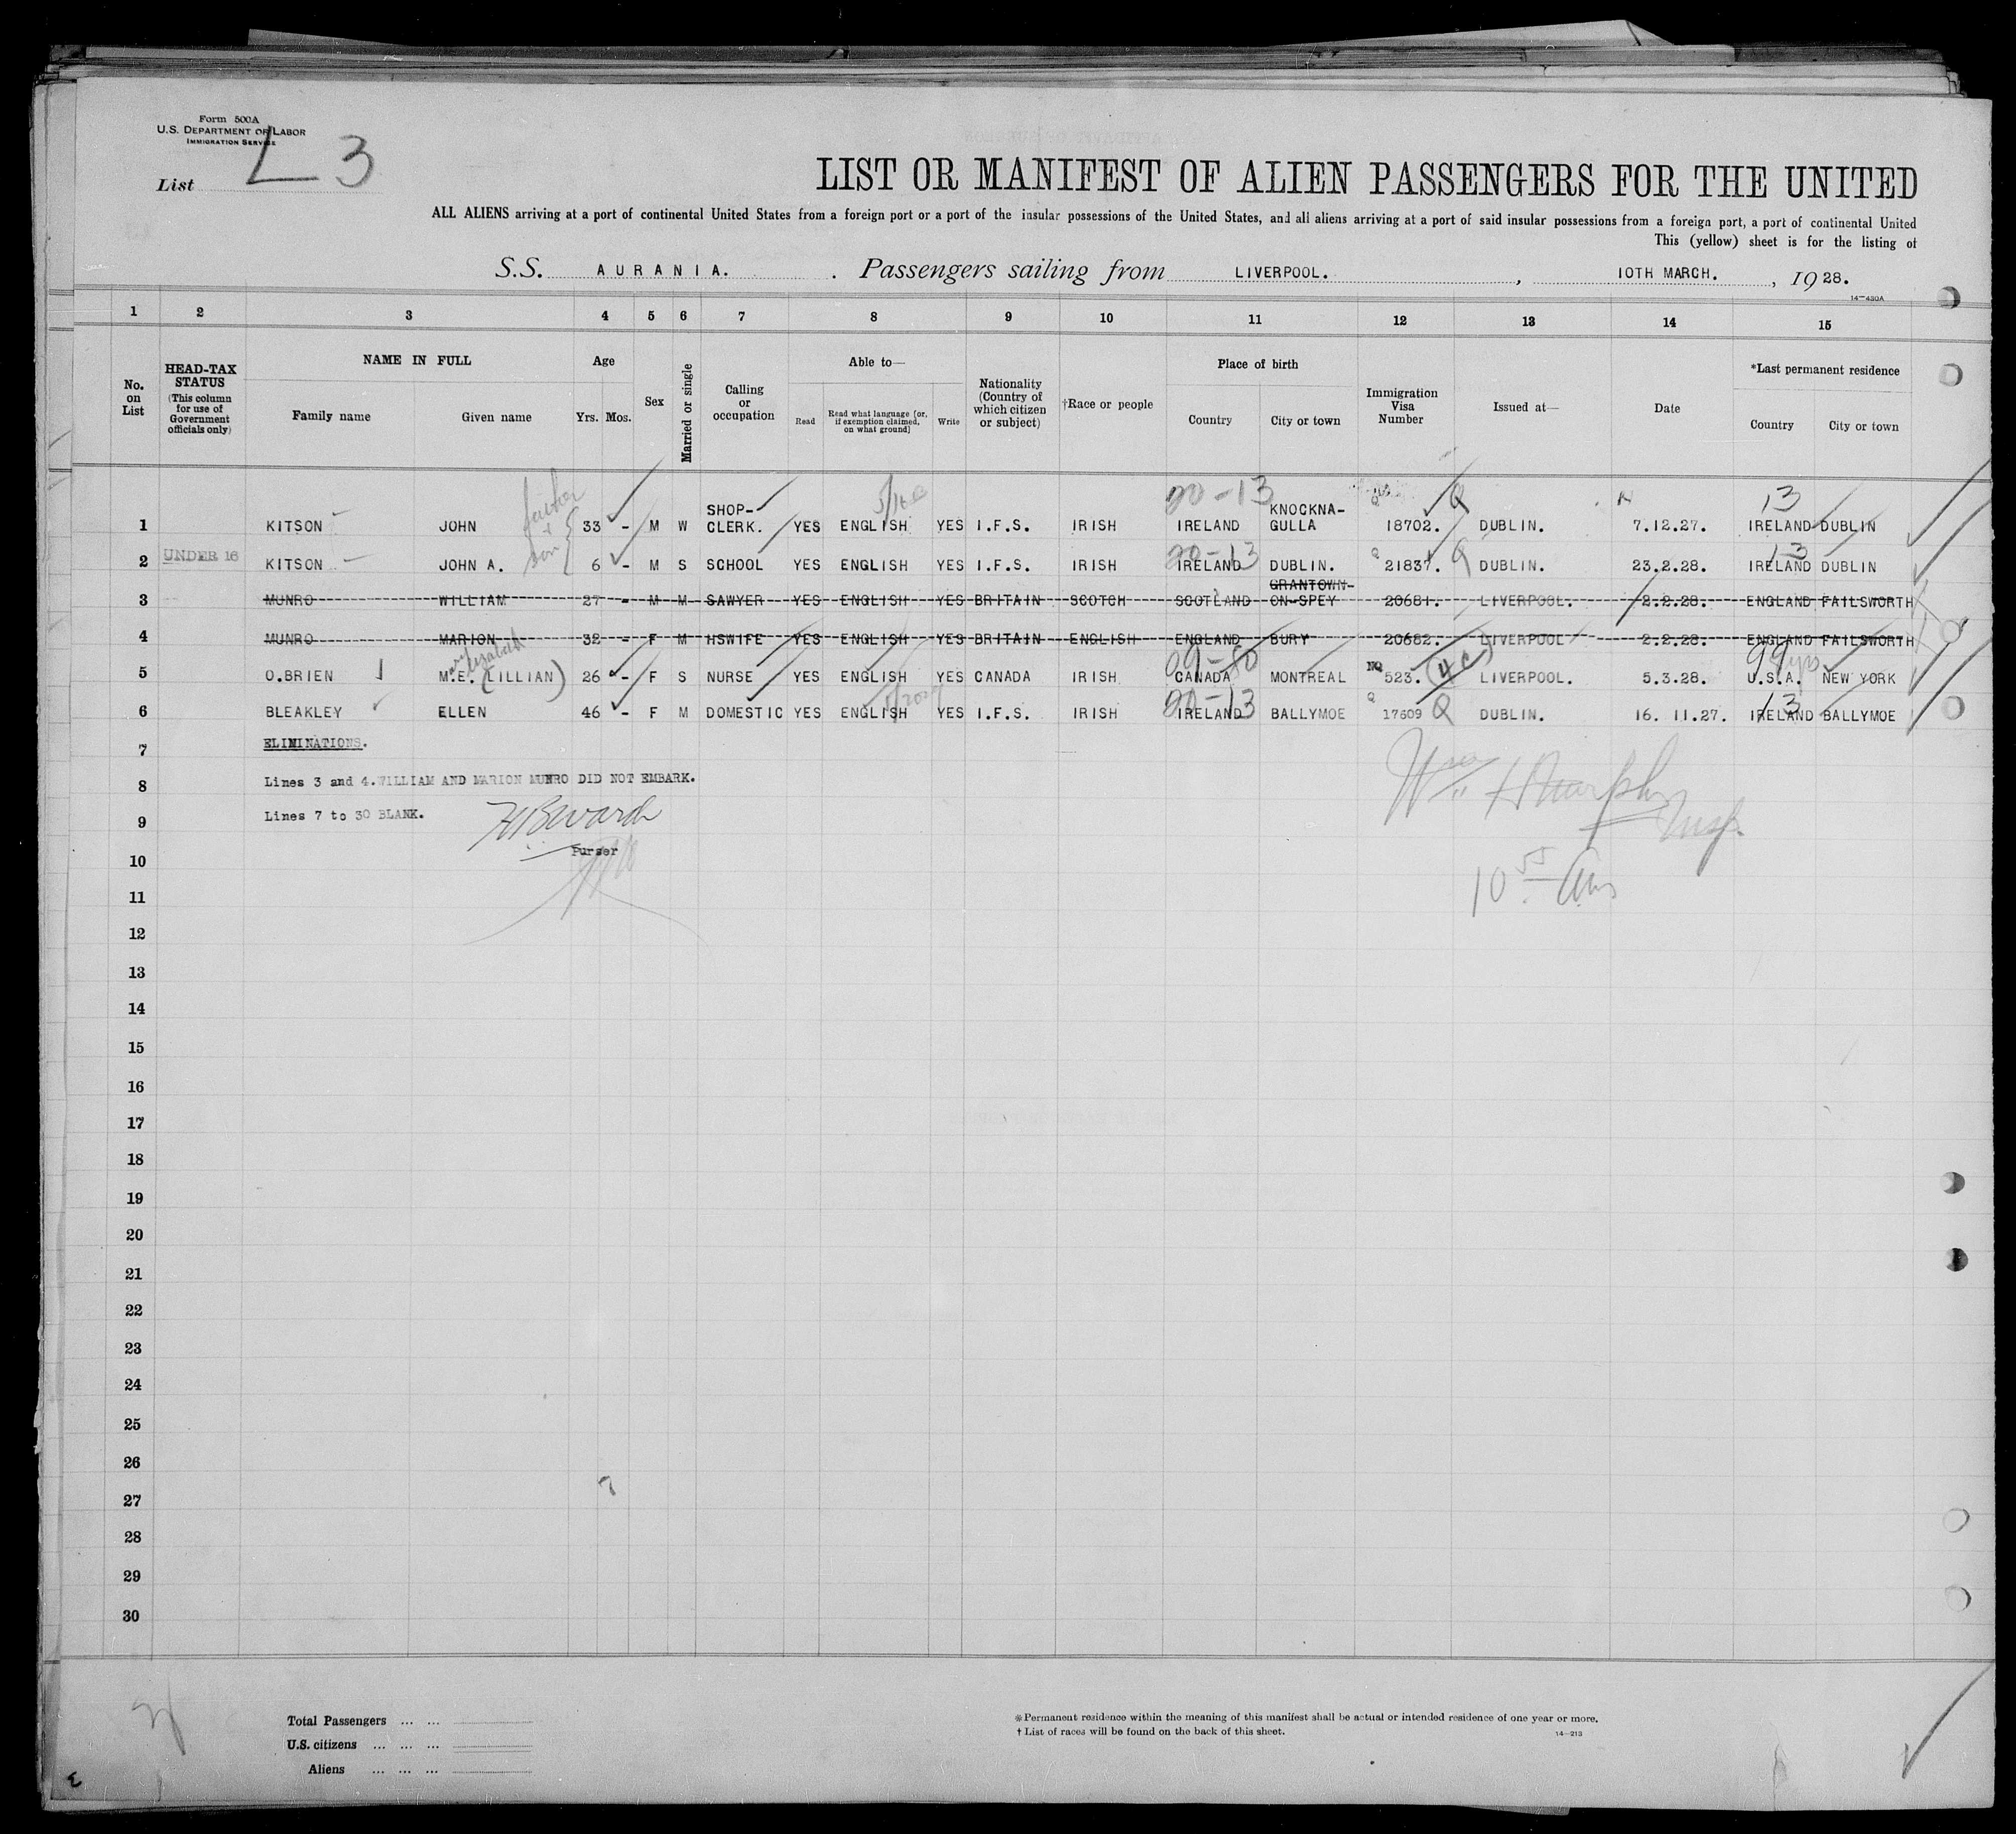 Form 500A
U.S. DEPARTMENT OF LABOR
IMMIGRATION SERVICE
List L 3
LIST OR MANIFEST OF ALIEN PASSENGERS FOR THE UNITED
ALL ALIENS arriving at a port of continental United States from a foreign port or a port of the insular possessions of the United States, and all aliens arriving at a port of said insular possessions from a foreign port, a port of continental United
This (yellow) sheet is for the listing of
S.S. AURANIA. Passengers sailing from LIVERPOOL. , 10TH MARCH. , 1928.
14—430A
1 2 3 4 5 6 7 8 9 10 11 12 13 14 15
No. on List
HEAD-TAX STATUS (This column for use of Government officials only)
NAME IN FULL
Family name Given name
Age
Yrs. Mos.
Sex
Married or single
Calling or occupation
Able to—
Read Read what language [or, if exemption claimed, on what ground] Write
Nationality (Country of which citizen or subject)
†Race or people
Place of birth
Country City or town
Immigration Visa Number
Issued at—
Date
*Last permanent residence
Country City or town
father + son
20-13 Q 13
1 KITSON JOHN 33 - M W SHOP-CLERK. YES ENGLISH YES I.F.S. IRISH IRELAND KNOCKNA-GULLA 18702. DUBLIN. 7.12.27. IRELAND DUBLIN
20-13 Q 13
2 UNDER 16 KITSON JOHN A. 6 - M S SCHOOL YES ENGLISH YES I.F.S. IRISH IRELAND DUBLIN. 21837. DUBLIN. 23.2.28. IRELAND DUBLIN
3 MUNRO WILLIAM 27 - M M SAWYER YES ENGLISH YES BRITAIN SCOTCH SCOTLAND GRANTOWN-ON-SPEY 20681. LIVERPOOL. 2.2.28. ENGLAND FAILSWORTH
4 MUNRO MARION 32 - F M HSWIFE YES ENGLISH YES BRITAIN ENGLISH ENGLAND BURY 20682. LIVERPOOL 2.2.28. ENGLAND FAILSWORTH
ary Elizabeth 09-80 99
5 O.BRIEN M.E. (LILLIAN) 26 - F S NURSE YES ENGLISH YES CANADA IRISH CANADA MONTREAL NQ 523. (4c) LIVERPOOL. 5.3.28. U.S.A. NEW YORK
20-13 13
6 BLEAKLEY ELLEN 46 - F M DOMESTIC YES ENGLISH YES I.F.S. IRISH IRELAND BALLYMOE Q 17609 Q DUBLIN. 16. 11.27. IRELAND BALLYMOE
7 ELIMINATIONS.
8 Lines 3 and 4. WILLIAM AND MARION MUNRO DID NOT EMBARK.
Wm H Murphy Insp.
9 Lines 7 to 30 BLANK.
10 Purser
10 55 Am
11
12
13
14
15
16
17
18
19
20
21
22
23
24
25
26
27
28
29
30
Total Passengers ... ...
U.S. citizens ... ... ...
Aliens ... ... ...
*Permanent residence within the meaning of this manifest shall be actual or intended residence of one year or more.
† List of races will be found on the back of this sheet.
14—213